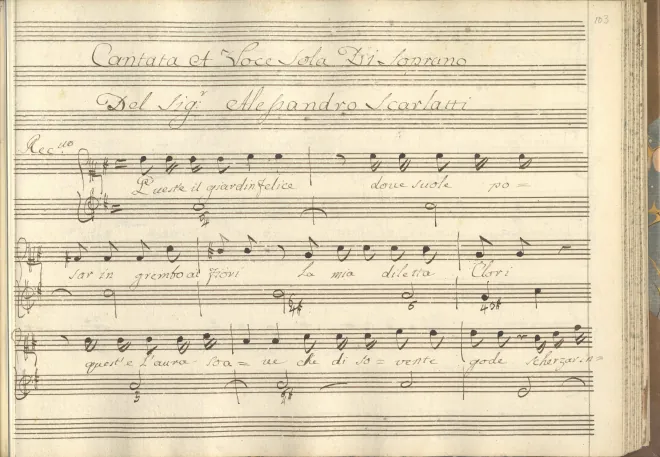 103
Cantata A Voce Sola Di Soprano
Del Sig.r Alessandro Scarlatti
Rec.uo
Queste il giardin felice doue suole po=
sar in gremboai Fiori la mia diletta Clori
quest'e l'aura soa= ue che di so= uente gode scherzar in=